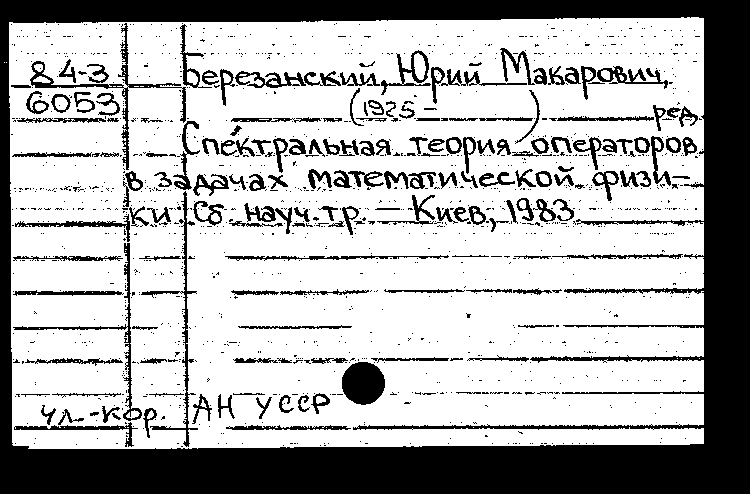 84-3 Березанский, Юрий Макарович,
6053 (1925- ) ред.
Спектральная теория операторов
в задачах математической физи-
ки: Сб. науч. тр. — Киев, 1983
чл.-кор. АН УССР